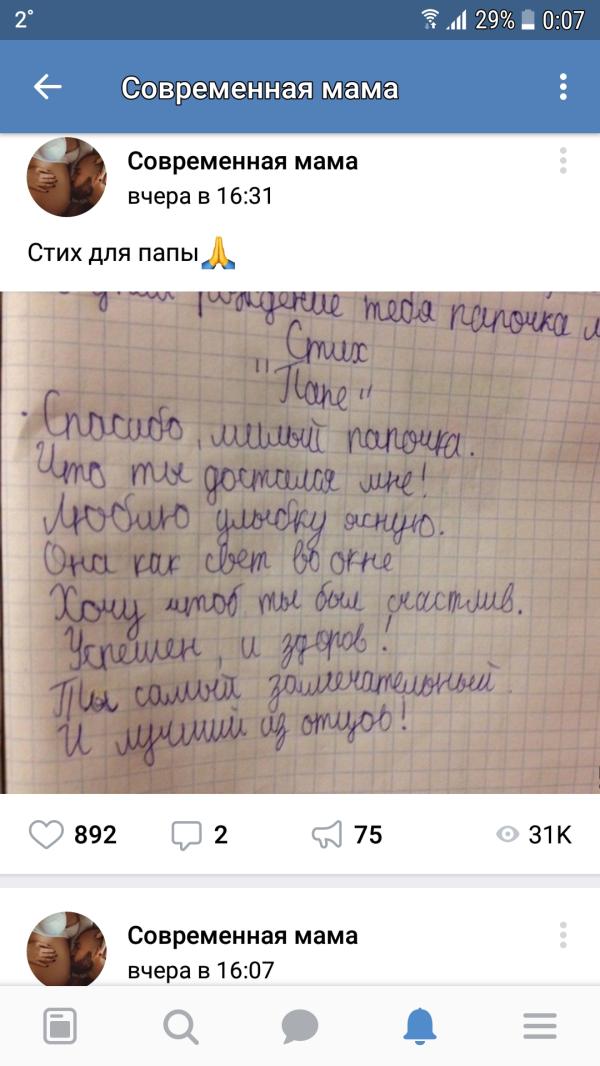 2°
29% 0:07
Современная мама
Современная мама
вчера в 16:31
Стих для папы🙏
рождение тебя папочка
Стих
"Папе"
Спасибо, милый папочка.
Что ты достался мне!
Люблю улыбку ясную.
Она как свет во окне
Хочу чтоб ты был счастлив.
Успешен, и здоров!
Ты самый замечательный.
И лучший из отцов!
892 2 75 31K
Современная мама
вчера в 16:07